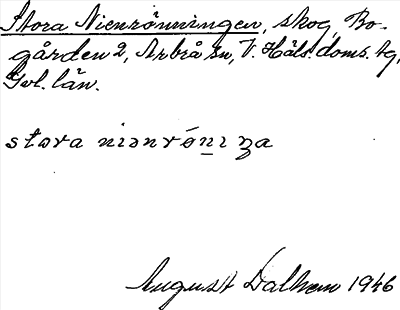 Stora Nienrönningen, skog, Bo-
gården 2, Arbrå sn, V. Häls. doms. tg,
Gvl. län.
stora niənrǿni ŋa
August Dalhem 1946